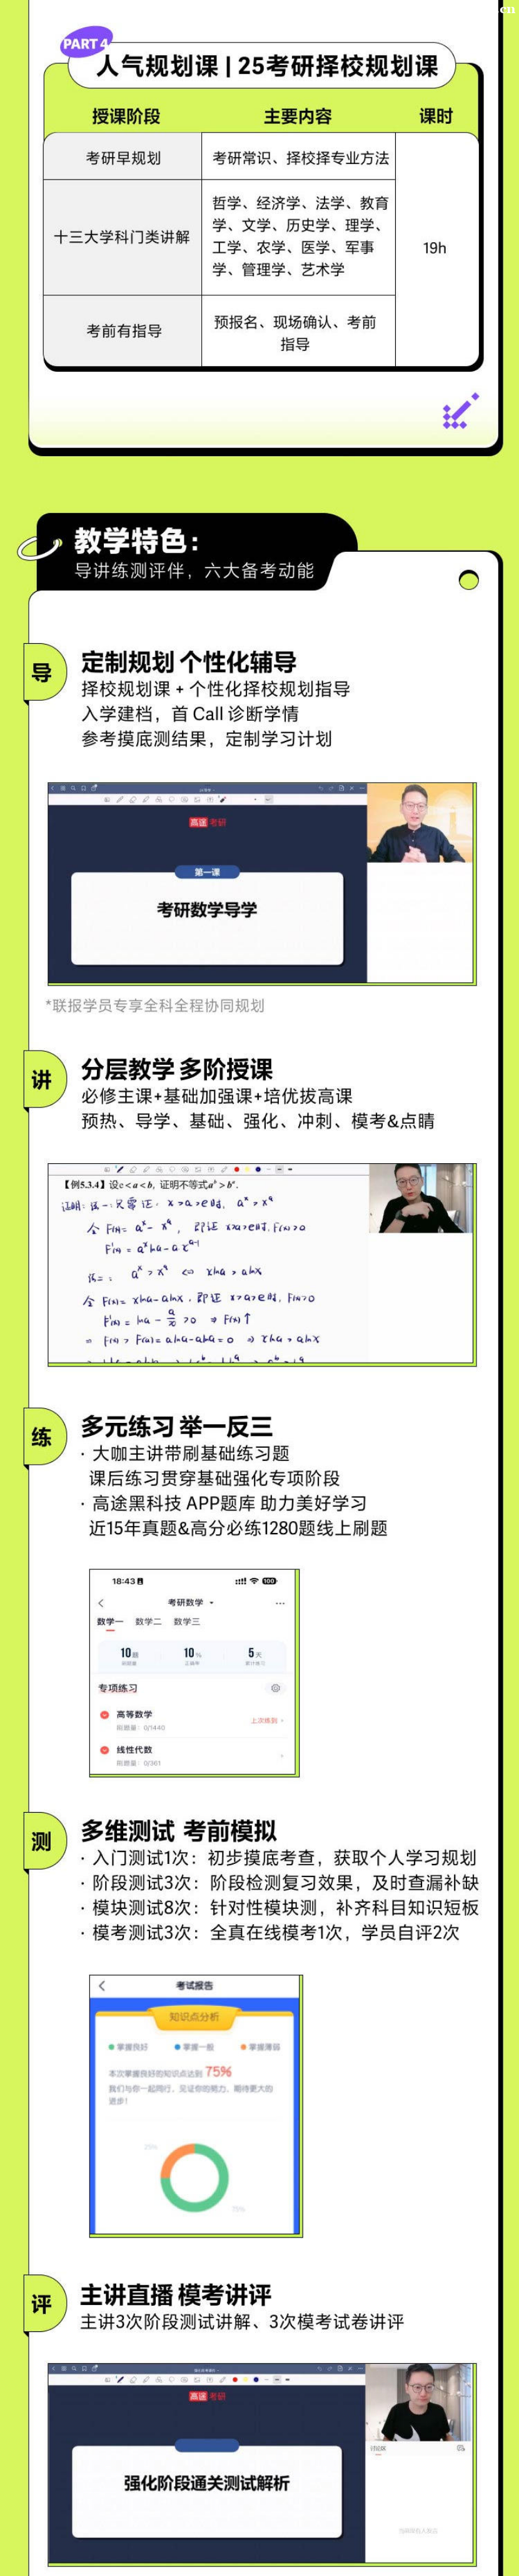 cn
PART 4
人气规划课 | 25考研择校规划课
授课阶段 主要内容 课时
考研早规划 考研常识、择校择专业方法
十三大学科门类讲解
哲学、经济学、法学、教育
学、文学、历史学、理学、
工学、农学、医学、军事
学、管理学、艺术学
19h
考前有指导
预报名、现场确认、考前
指导
教学特色：
导讲练测评伴，六大备考动能
导
定制规划 个性化辅导
择校规划课 + 个性化择校规划指导
入学建档，首 Call 诊断学情
参考摸底测结果，定制学习计划
高途 考研
第一课
考研数学导学
*联报学员专享全科全程协同规划
讲
分层教学 多阶授课
必修主课+基础加强课+培优拔高课
预热、导学、基础、强化、冲刺、模考&点睛
【例5.3.4】设e<a<b, 证明不等式aᵇ>bᵃ.
证明: 法一: 只需证, x>a>e时, aˣ>xᵃ
令 F(x)= aˣ-xᵃ, 即证 x>a>e时, F(x)>0
F'(x) = aˣlna-axᵃ⁻¹
法二: aˣ>xᵃ <=> xlna>alnx
令 F(x)=xlna-alnx, 即证 x>a>e时, F(x)>0
F'(x)=lna-a/x>0 => F(x)↑
=> F(x)>F(a)=alna-alna=0 => xlna>alnx
练
多元练习 举一反三
· 大咖主讲带刷基础练习题
课后练习贯穿基础强化专项阶段
· 高途黑科技 APP题库 助力美好学习
近15年真题&高分必练1280题线上刷题
18:43
100
考研数学
数学一 数学二 数学三
10题 10% 5天
刷题量 正确率 累计练习
专项练习
高等数学
刷题量: 0/1440
上次练到
线性代数
刷题量: 0/361
测
多维测试 考前模拟
· 入门测试1次：初步摸底考查，获取个人学习规划
· 阶段测试3次：阶段检测复习效果，及时查漏补缺
· 模块测试8次：针对性模块测，补齐科目知识短板
· 模考测试3次：全真在线模考1次，学员自评2次
考试报告
知识点分析
掌握良好 掌握一般 掌握薄弱
本次掌握良好的知识点达到 75%
我们与你一起同行，见证你的努力，期待更大的
进步！
25%
75%
评
主讲直播 模考讲评
主讲3次阶段测试讲解、3次模考试卷讲评
高途 考研
强化阶段通关测试解析
讨论区